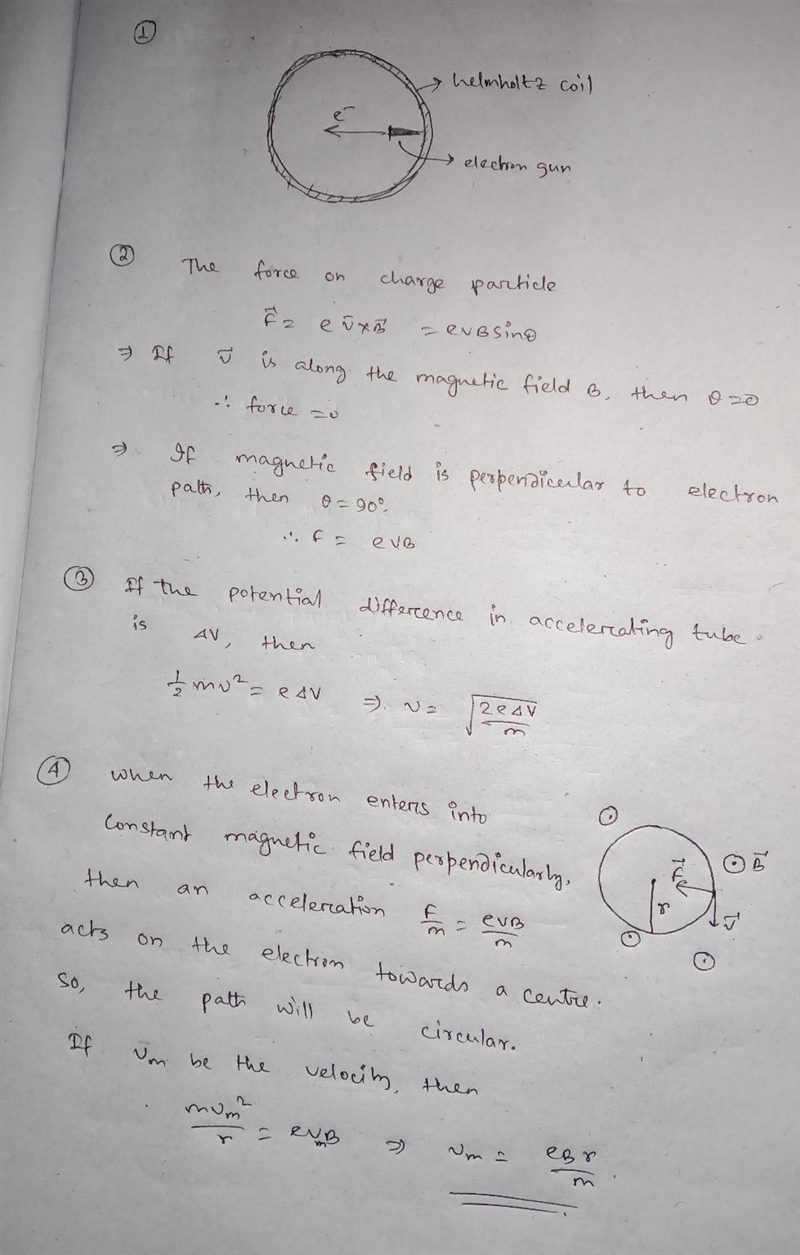 ①
helmholtz coil
e⁻
electron gun
② The force on charge particle
F⃗ = e v̄ × B⃗ = evBsinθ
⇒ If v⃗ is along the magnetic field B, then θ=0
∴ force =0
⇒ If magnetic field is perpendicular to electron
path, then θ = 90°
∴ F = evB
③ If the potential difference in accelerating tube
is ΔV, then
½ mv² = eΔV ⇒ v = √(2eΔV/m)
④ When the electron enters into
constant magnetic field perpendicularly,
then an acceleration F/m = evB/m
acts on the electron towards a centre.
So, the path will be circular.
If vm be the velocity, then
mvm²/r = evmB ⇒ vm = eBr/m.
B⃗
F⃗
r
v⃗